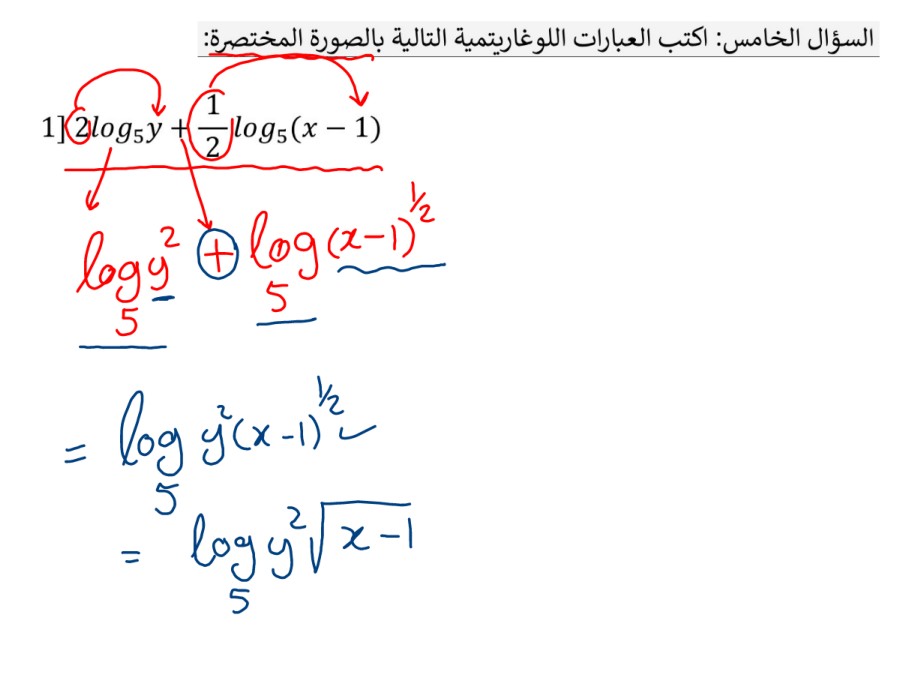 السؤال الخامس: اكتب العبارات اللوغاريتمية التالية بالصورة المختصرة:
1] 2log₅y + 1/2 log₅(x − 1)
log₅ y² + log₅ (x−1)^1/2
= log₅ y²(x−1)^1/2 ✓
= log₅ y²√(x−1)